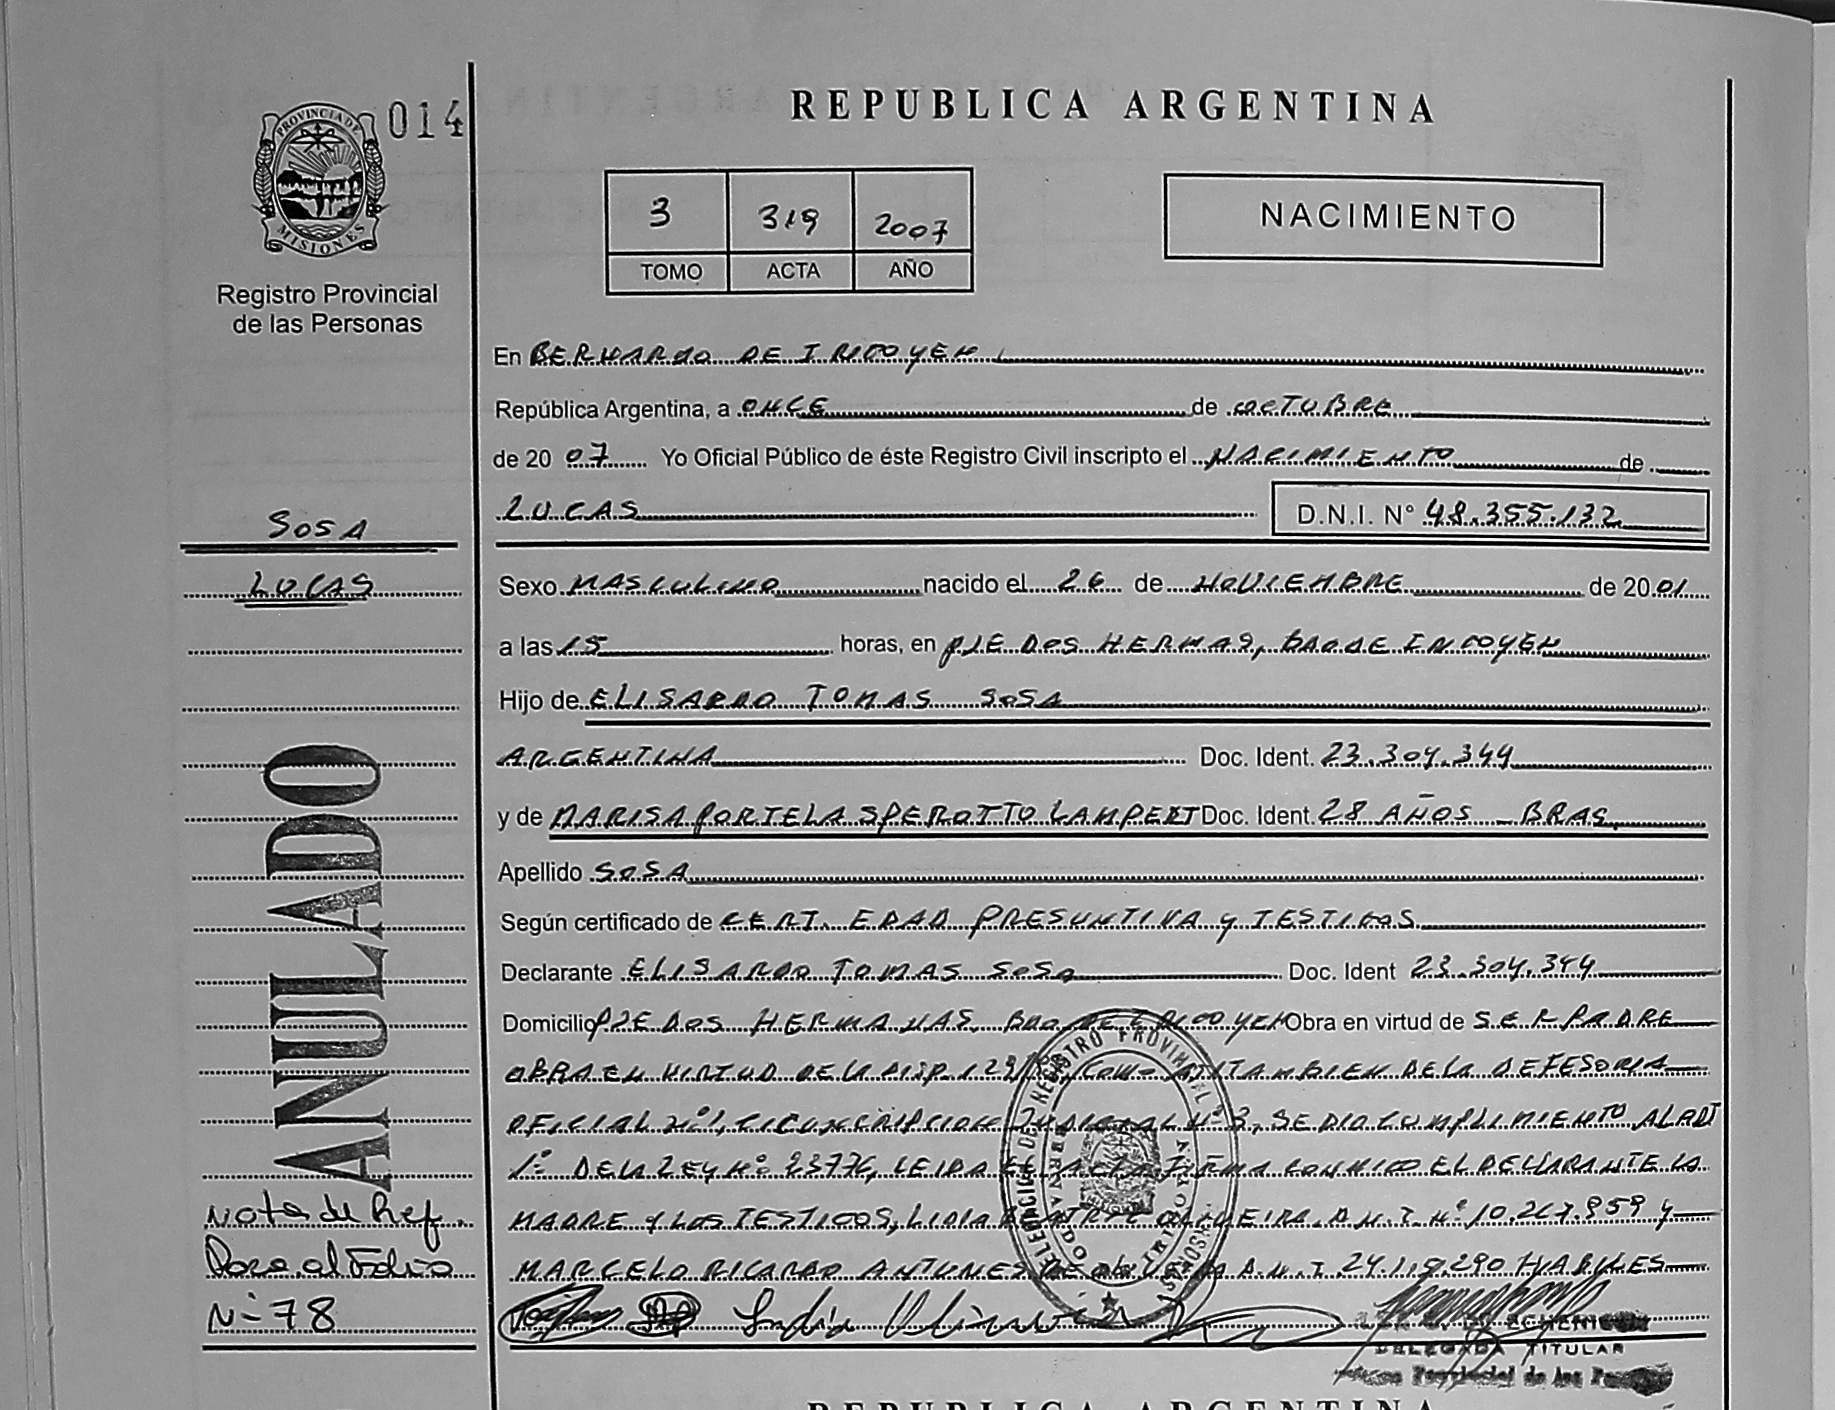 014
PROVINCIA DE
MISIONES
Registro Provincial
de las Personas
REPUBLICA ARGENTINA
3 319 2007
TOMO ACTA AÑO
NACIMIENTO
En BERNARDO DE IRIGOYEN
República Argentina, a ONCE de OCTUBRE
de 20 07 Yo Oficial Público de éste Registro Civil inscripto el NACIMIENTO de
LUCAS D.N.I. N° 48.355.132
SOSA
LUCAS
Sexo MASCULINO nacido el 26 de NOVIEMBRE de 20 01
a las 15 horas, en PJE DOS HERMAS, BDO DE IRIGOYEN
Hijo de ELISARDO TOMAS SOSA
ARGENTINA Doc. Ident. 23.304.344
y de MARISA PORTELA SPEROTTO LAMPERT Doc. Ident. 28 AÑOS - BRAS.
Apellido SOSA
Según certificado de CERT. EDAD PRESUNTIVA y TESTIGOS
Declarante ELISARDO TOMAS SOSA Doc. Ident 23.304.344
Domicilio PJE DOS HERMANAS, BDO DE IRIGOYEN Obra en virtud de SER PADRE
OBRA EN VIRTUD DE LA DISP. COMO TAMBIEN DE LA DEFESORIA
OFICIAL N°1, CICUNCRIPCION JUDICIAL N° 3, SE DIO CUMPLIMIENTO AL ART
1° DE LA LEY N° 23776, LEIDA EL ACTA FIRMA CONMIGO EL DECLARANTE LA
MADRE Y LOS TESTIGOS, LIDIA D.N.I. N° 10.267.859 y
MARCELO RICARDO ANTUNES DE D.N.I. HABILES
ANULADO
Nota de Ref.
Pasa al Folio
N° 78
DELEGACION DEL REGISTRO PROVINCIAL
BERNARDO DE IRIGOYEN
DELEGADA TITULAR
Provincial de las
REPUBLICA ARGENTINA